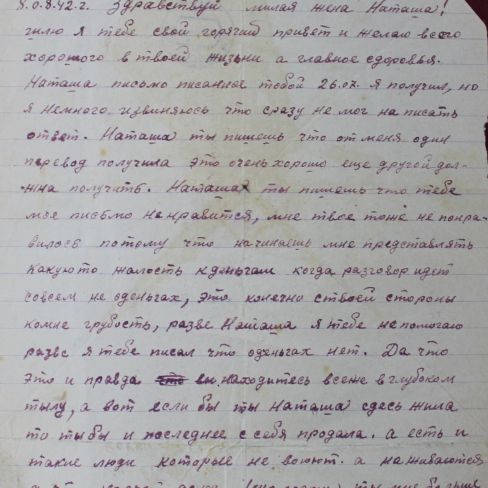 8.08.42.г. Здравствуй милая жена Наташа!
шлю я тебе свой горячий привет и желаю всего
хорошого в твоей жизни а главное сдоровья.
Наташа письмо писанное тобой 26.07. Я получил, но
я немного извиняюсь что сразу не мог написать
ответ. Наташа ты пишешь что от меня один
перевод получила это очень хорошо еще другой дол-
жна получить. Наташа ты пишешь что тебе
мое письмо не нравится, мне твое тоже не понра-
вилось потому что начинаешь мне представлять
какуюто жалость кденьгам когда разговор идет
совсем не оденьгах, это конечно ствоей стороны
комне грубость, разве Наташа я тебе непомогаю
разве я тебе писал что оденьгах нет. Да что
это и правда что вы находитесь всеже вглубоком
тылу, а вот если бы ты Наташа сдесь жила
то тыбы и последнее с себя продала. а есть и
такие люди которые не воюют. а наживаются
ты мне больше